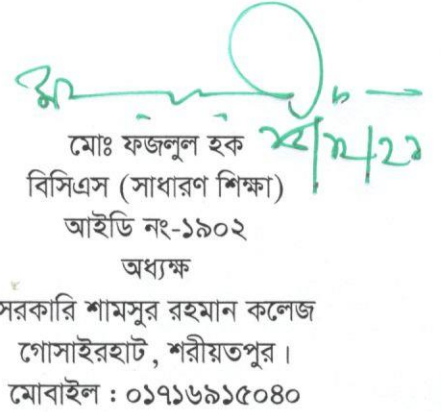 মোঃ ফজলুল হক
বিসিএস (সাধারণ শিক্ষা)
আইডি নং-১৯০২
অধ্যক্ষ
সরকারি শামসুর রহমান কলেজ
গোসাইরহাট, শরীয়তপুর।
মোবাইল : ০১৭১৬৯১৫০৪০